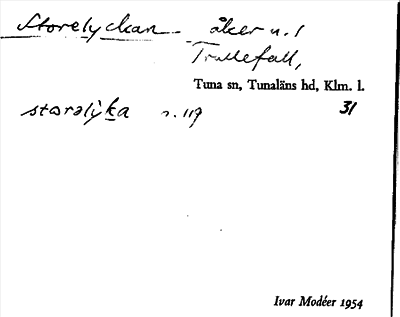 Storelyckan åker u. 1
Trullefall,
Tuna sn, Tunaläns hd, Klm. l.
storalyka n. 119 31
Ivar Modéer 1954